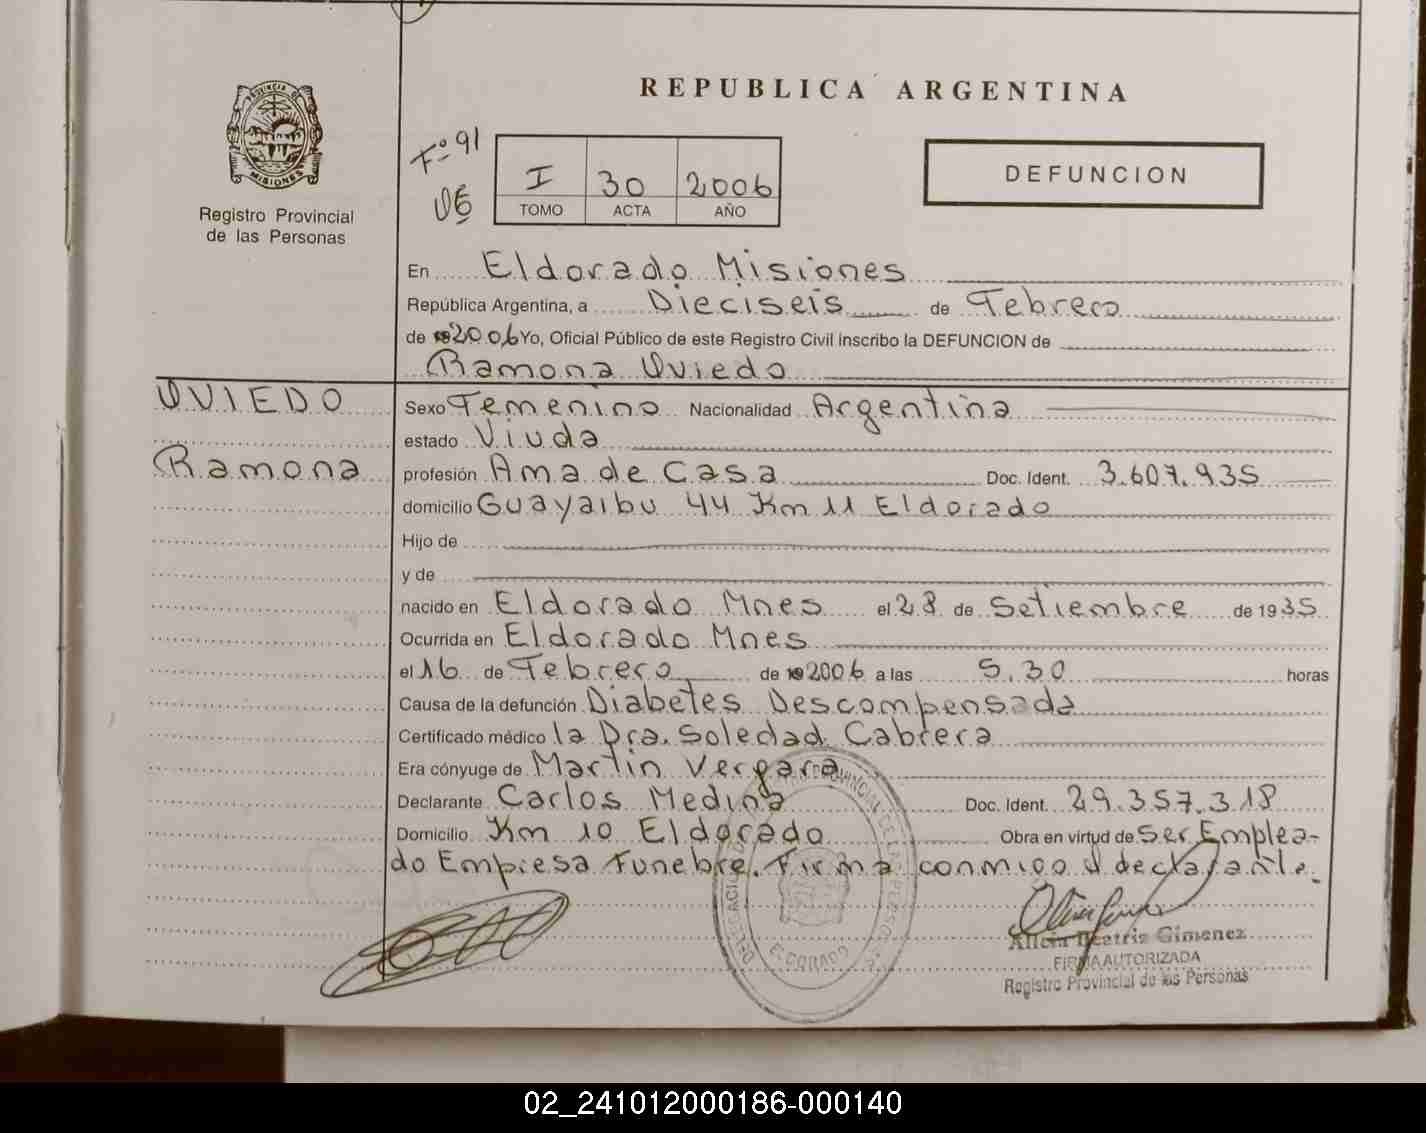 REPUBLICA ARGENTINA
PROVINCIA DE
MISIONES
Registro Provincial
de las Personas
Fº 91
I 30 2006
TOMO ACTA AÑO
DEFUNCION
En Eldorado Misiones
República Argentina, a Dieciseis de Febrero
de 2006 Yo, Oficial Público de este Registro Civil inscribo la DEFUNCION de
Ramona Oviedo
OVIEDO
Ramona
Sexo Femenino Nacionalidad Argentina
estado Viuda
profesión Ama de Casa Doc. Ident. 3.607.935
domicilio Guayaibu 44 Km 11 Eldorado
Hijo de
y de
nacido en Eldorado Mnes el 28 de Setiembre de 1935
Ocurrida en Eldorado Mnes
el 16 de Febrero de 2006 a las 5.30 horas
Causa de la defunción Diabetes Descompensada
Certificado médico la Dra. Soledad Cabrera
Era cónyuge de Martin Vergara
Declarante Carlos Medina Doc. Ident. 29.357.318
Domicilio Km 10 Eldorado Obra en virtud de Ser Emplea-
do Empresa Funebre. Firma conmigo el declarante.
ELDORADO
Alicia Beatriz Gimenez
FIRMA AUTORIZADA
Registro Provincial de las Personas
02_241012000186-000140